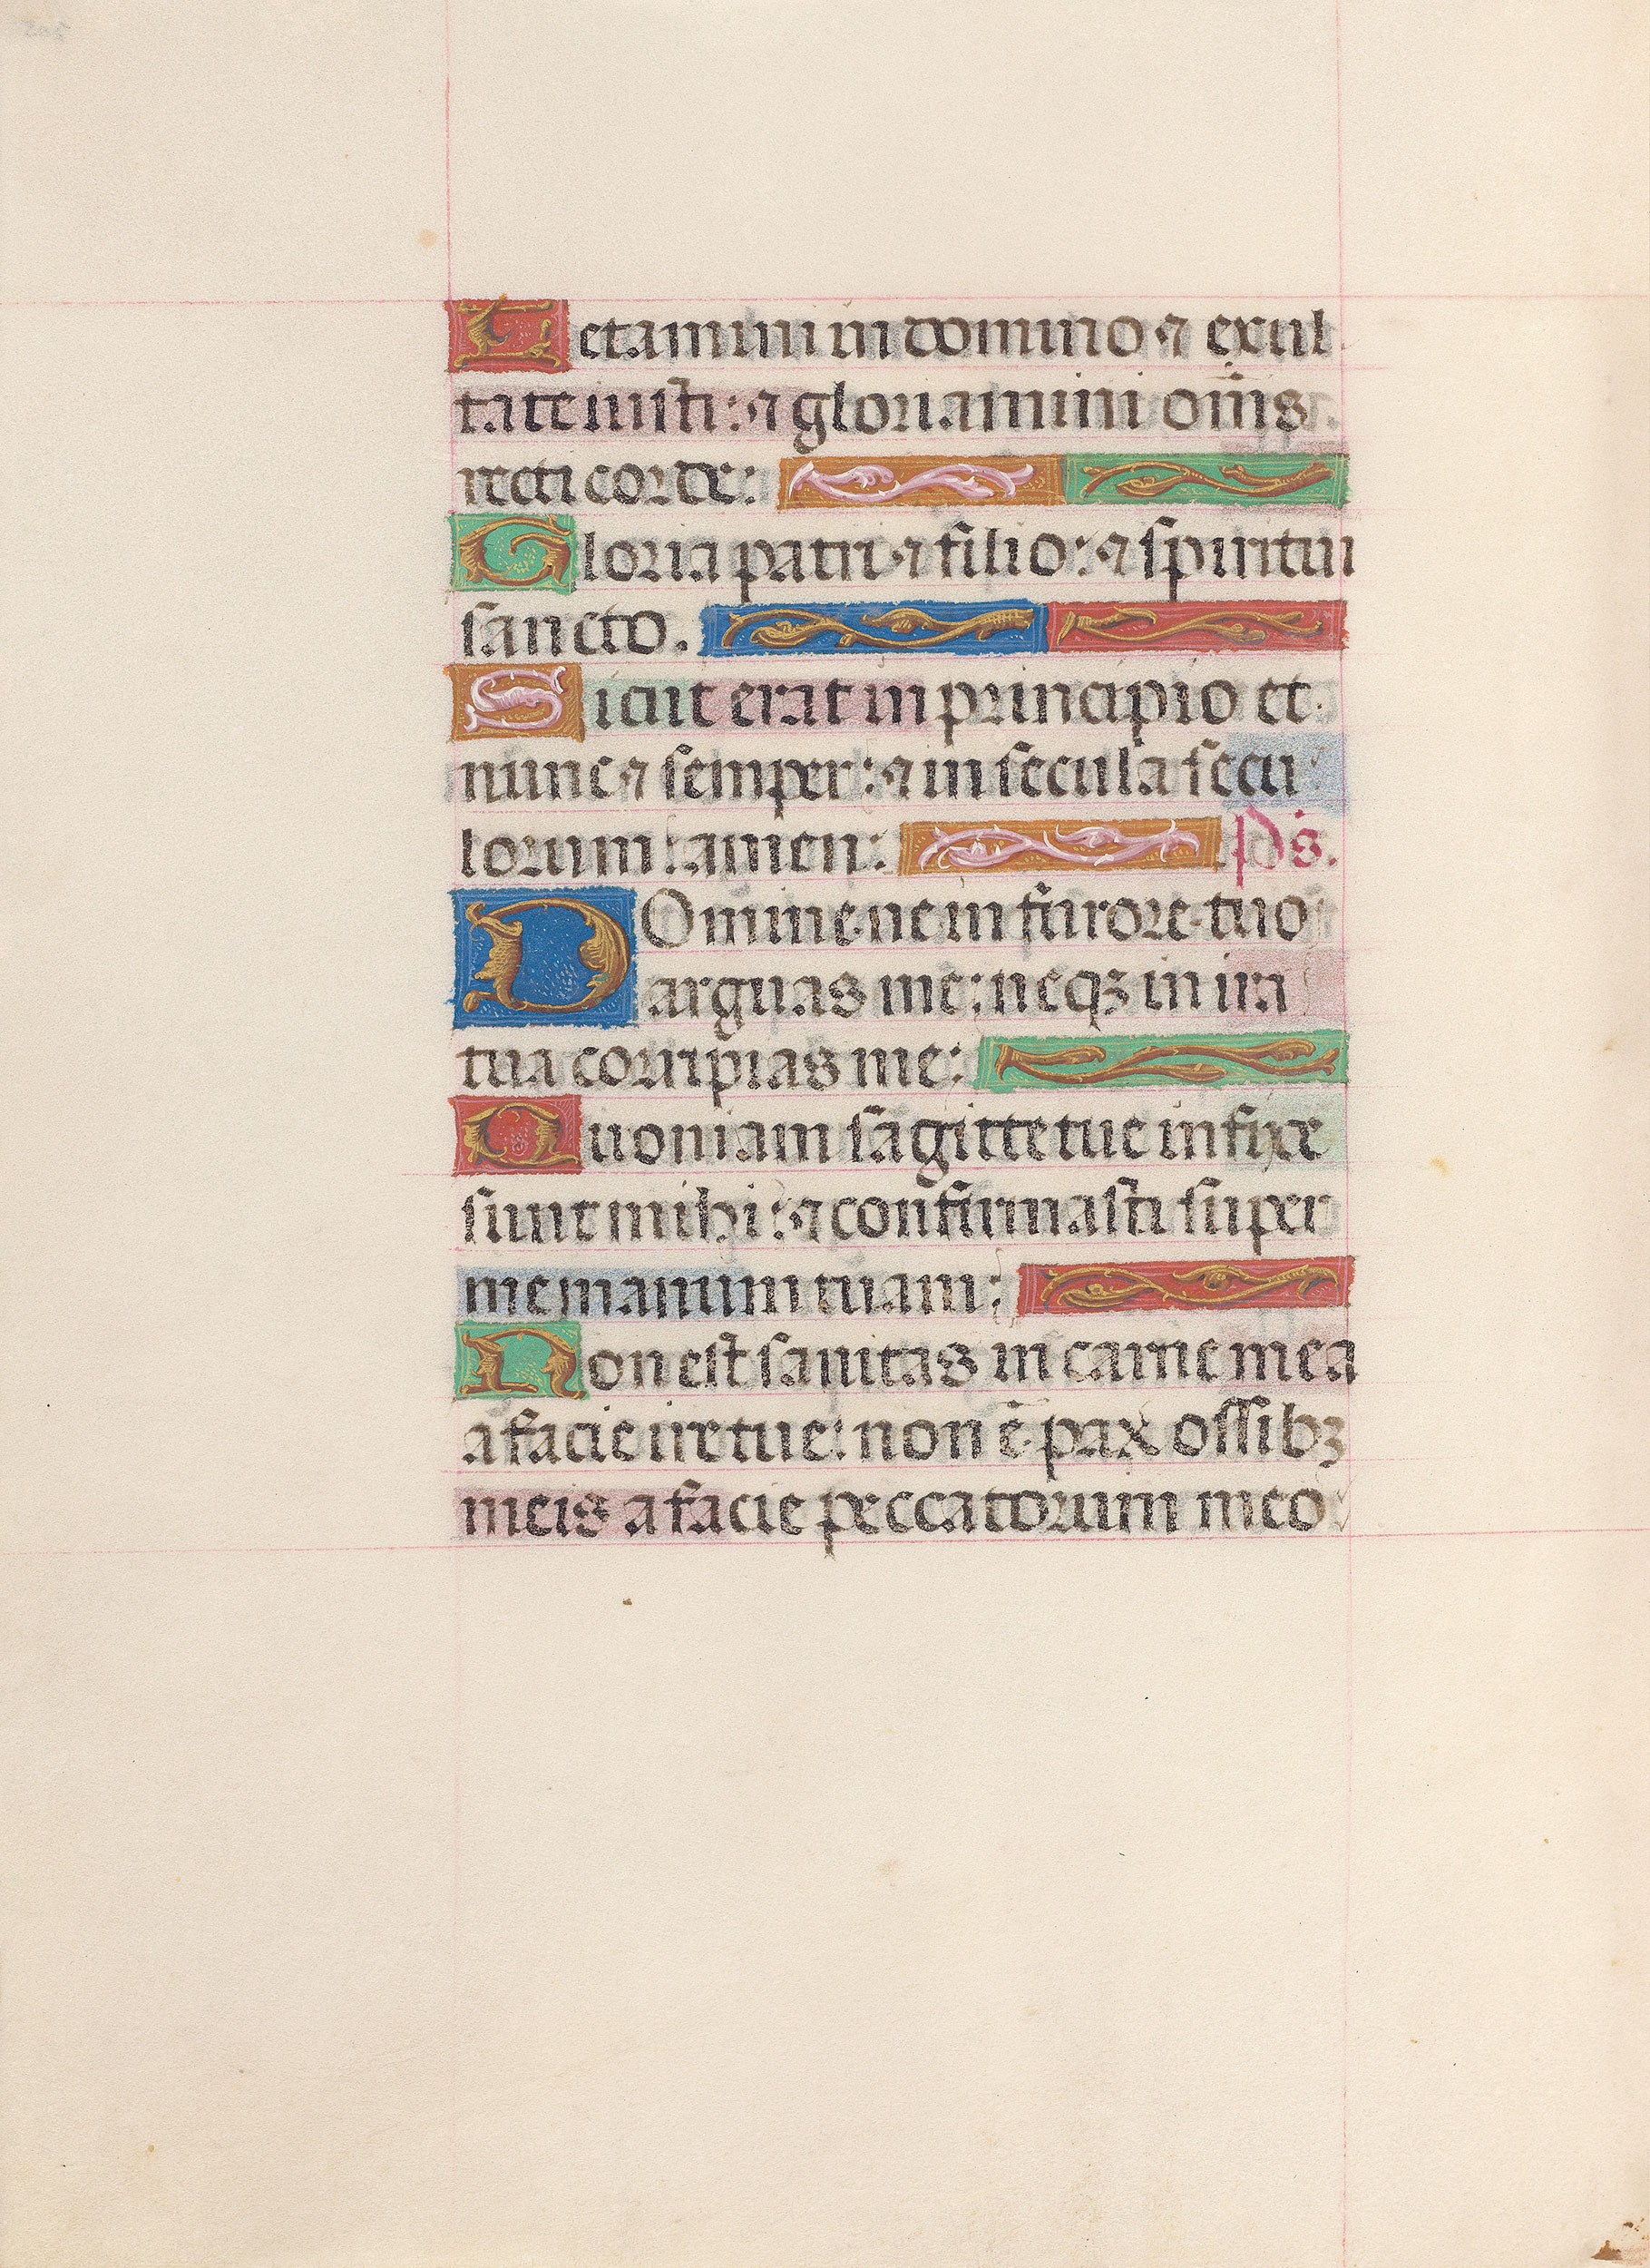 Letamini in domino ⁊ exul
tate iusti: ⁊ gloriamini om̄s
recti corde:
Gloria patri ⁊ filio: ⁊ spiritui
sancto.
Sicut erat in principio et
nunc ⁊ semper: ⁊ in secula secu
lorum: amen: p̄s.
DOmine ne in furore tuo
arguas me: neqꝫ in ira
tua corripias me:
Quoniam sagitte tue infixe
sunt mihi: ⁊ confirmasti super
me manum tuam:
Non est sanitas in carne mea
a facie ire tue: non ē pax ossibꝫ
meis a facie peccatorum meo